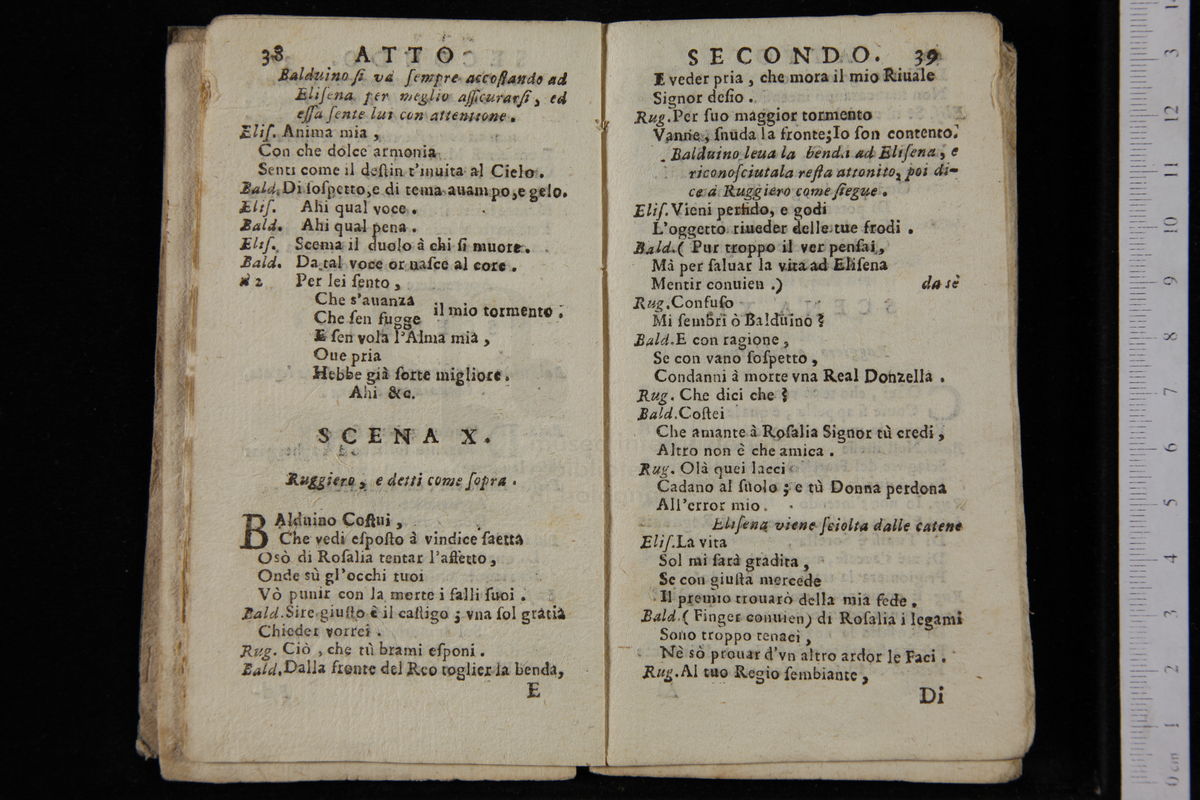 38 ATTO
Balduino ſi và ſempre accoſtando ad
Eliſena per meglio aſſicurarſi, ed
eſſa ſente lui con attentione.
Eliſ. Anima mia,
Con che dolce armonia
Senti come il deſtin t'inuita al Cielo.
Bald. Di ſoſpetto, e di tema auampo, e gelo.
Eliſ. Ahi qual voce.
Bald. Ahi qual pena.
Eliſ. Scema il duolo à chi ſi muore.
Bald. Da tal voce or naſce al core.
à 2 Per lei ſento,
Che s'auanza
Che ſen fugge il mio tormento.
E ſen vola l'Alma mia,
Oue pria
Hebbe già ſorte migliore.
Ahi &c.
SCENA X.
Ruggiero, e detti come ſopra.
BAlduino Coſtui,
Che vedi eſpoſto à vindice ſaetta
Osò di Roſalia tentar l'affetto,
Onde sù gl'occhi tuoi
Vò punir con la morte i falli ſuoi.
Bald. Sire giuſto è il caſtigo; vna ſol gratia
Chieder vorrei.
Rug. Ciò, che tù brami eſponi.
Bald. Dalla fronte del Reo toglier la benda,
E
SECONDO. 39
E veder pria, che mora il mio Riuale
Signor deſio.
Rug. Per ſuo maggior tormento
Vanne, ſnuda la fronte; Io ſon contento.
Balduino leua la benda ad Eliſena, e
riconoſciutala reſta attonito, poi di-
ce à Ruggiero come ſiegue.
Eliſ. Vieni perfido, e godi
L'oggetto riueder delle tue frodi.
Bald. (Pur troppo il ver penſai,
Mà per ſaluar la vita ad Eliſena
Mentir conuien.) da sè
Rug. Confuſo
Mi ſembri ò Balduino?
Bald. E con ragione,
Se con vano ſoſpetto,
Condanni à morte vna Real Donzella.
Rug. Che dici che?
Bald. Coſtei
Che amante à Roſalia Signor tù credi,
Altro non è che amica.
Rug. Olà quei lacci
Cadano al ſuolo; e tù Donna perdona
All'error mio.
Eliſena viene ſciolta dalle catene
Eliſ. La vita
Sol mi ſarà gradita,
Se con giuſta mercede
Il premio trouarò della mia fede.
Bald. (Finger conuien) di Roſalia i legami
Sono troppo tenaci,
Nè sò prouar d'vn altro ardor le Faci.
Rug. Al tuo Regio ſembiante,
Di
0 cm 1 2 3 4 5 6 7 8 9 10 11 12 13 14